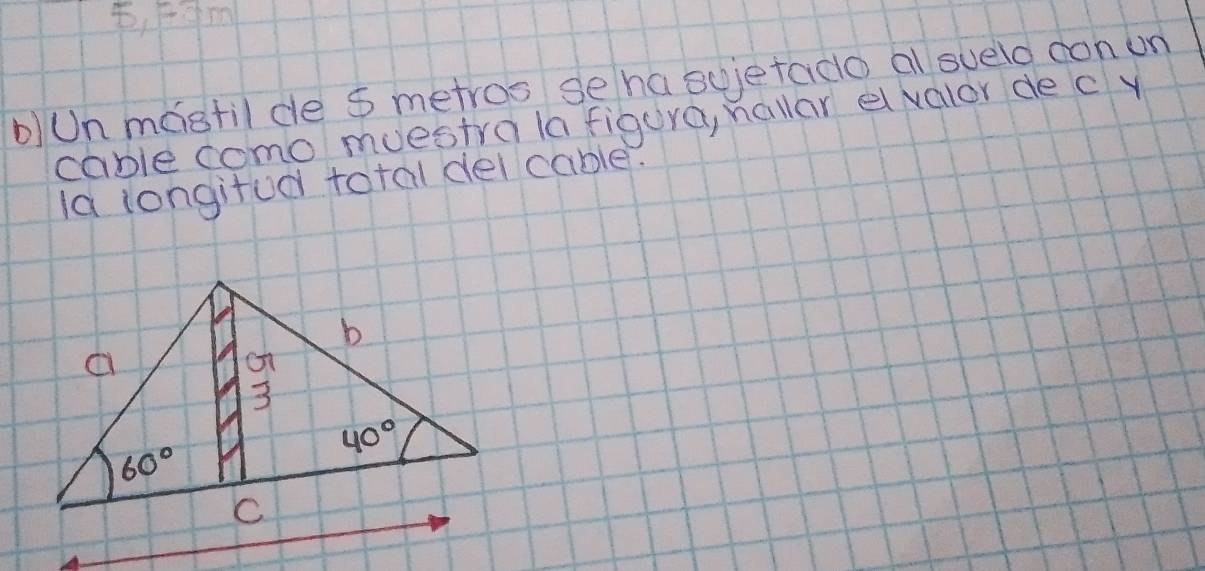 b) Un mástil de 5 metros se ha sujetado al suelo con un
cable como muestra la figura, hallar el valor de c y
la longitud total del cable.
a
b
5m
60°
40°
c